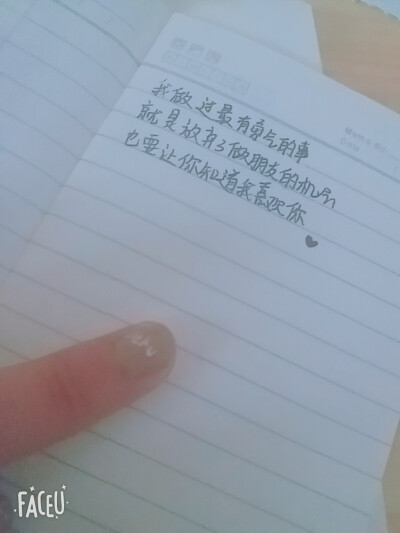 我做过最有勇气的事
就是放弃了做朋友的机会
也要让你知道我喜欢你
FACEU